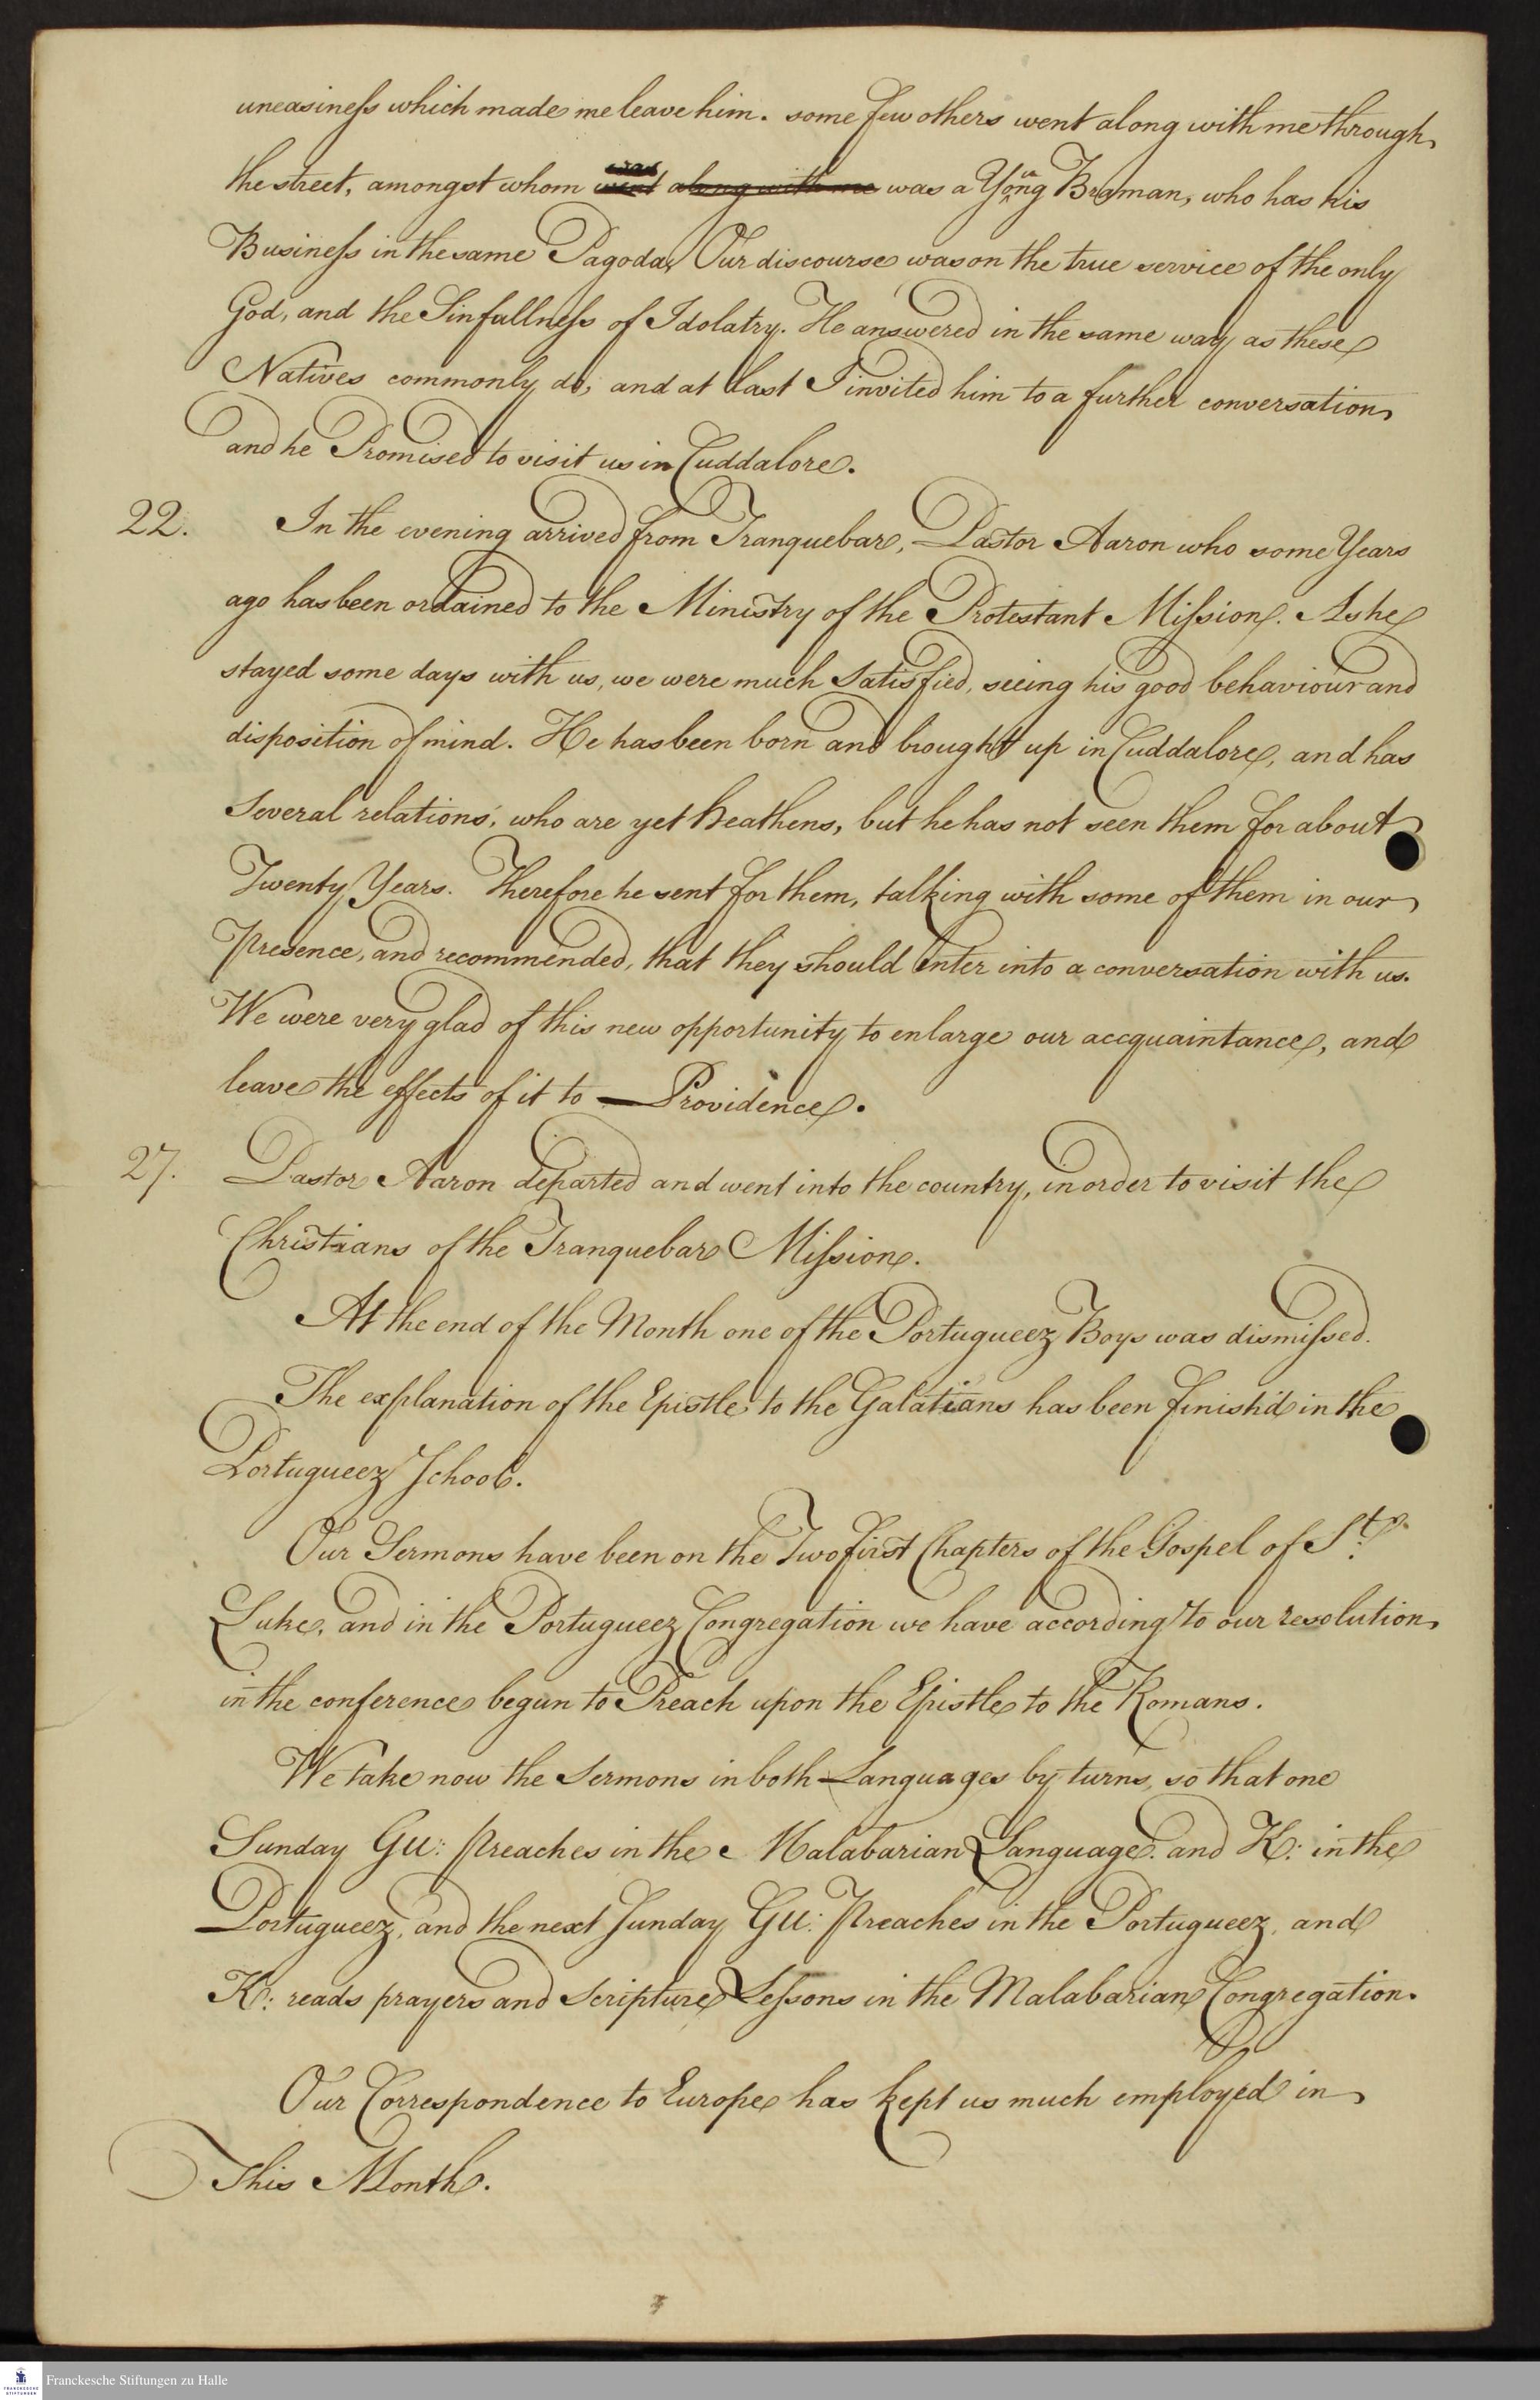 uneasiness which made me leave him. some few others went along with me through
the street, amongst whom was went along with me was a Young Braman, who has his
Business in the same Pagoda, Our discourse was on the true service of the only
God, and the Sinfullness of Idolatry. He answered in the same way as these
Natives commonly do; and at last I invited him to a further conversation
and he Promised to visit us in Cuddalore.
22. In the evening arrived from Tranquebar, Pastor Aaron who some Years
ago has been ordained to the Ministry of the Protestant Mission. As he
stayed some days with us, we were much Satisfied, seeing his good behaviour and
disposition of mind. He has been born and brought up in Cuddalore, and has
Several relations, who are yet heathens, but he has not seen them for about
Twenty Years. Therefore he sent for them, talking with some of them in our
Presence, and recommended, that they should Enter into a conversation with us.
We were very glad of this new opportunity to enlarge our accquaintance, and
leave the effects of it to Providence.
27. Pastor Aaron departed and went into the country, in order to visit the
Christians of the Tranquebar Mission.
At the end of the Month one of the Portugueez Boys was dismissed.
The explanation of the Epistle to the Galatians has been finish'd in the
Portugueez School.
Our Sermons have been on the Two first Chapters of the Gospel of St.
Luke, and in the Portugueez Congregation we have according to our resolution
in the conference begun to Preach upon the Epistle to the Romans.
We take now the Sermons in both Languages by turns, so that one
Sunday Gu: Preaches in the Malabarian Language. and K: in the
Portugueez, and the next Sunday Gu: Preaches in the Portugueez, and
K: reads prayers and Scripture Lessons in the Malabarian Congregation.
Our Correspondence to Europe has kept us much employed in
This Month.
Franckesche Stiftungen zu Halle
FRANCKESCHE
STIFTUNGEN